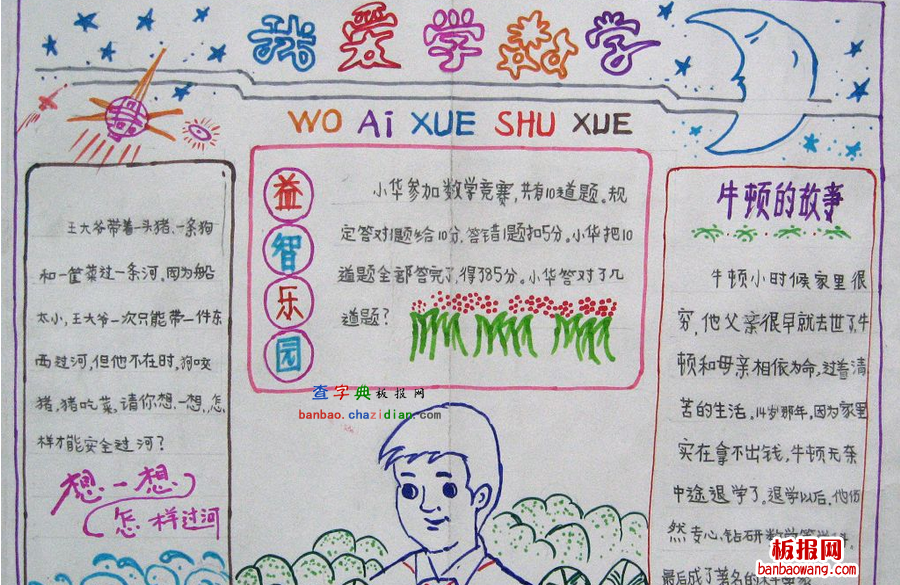 我爱学数学
WO Ai XUE SHU XUE
王大爷带着一头猪、一条狗
和一筐菜过一条河,因为船
太小,王大爷一次只能带一件东
西过河,但他不在时,狗咬
猪,猪吃菜,请你想一想,怎
样才能安全过河?
想一想
怎样过河
益智乐园
小华参加数学竞赛,共有10道题。规
定答对1题给10分,答错1题扣5分。小华把10
道题全部答完了,得了85分。小华答对了几
道题?
查字典板报网
banbao.chazidian.com
牛顿的故事
牛顿小时候家里很
穷,他父亲很早就去世了,牛
顿和母亲相依为命,过着清
苦的生活。14岁那年,因为家里
实在拿不出钱,牛顿无奈
中途退学了。退学以后,他仍
然专心钻研数学等
最后成了著名的
板报网
banbaowang.com